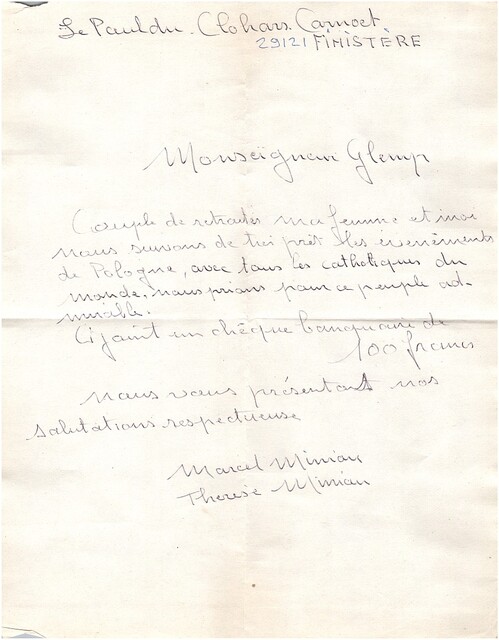 Le Pauldu. Clohars. Carnoet
29121 FINISTÈRE
Monseigneur Glemp
Couple de retraités ma femme et moi
nous suivons de très près les évènements
de Pologne, avec tous les catholiques du
monde, nous prions pour ce peuple ad-
mirable.
Ci joint un chèque bancaire de
100 francs
nous vous présentons nos
salutations respectueuse
Marcel Miniau
Thérèse Miniau